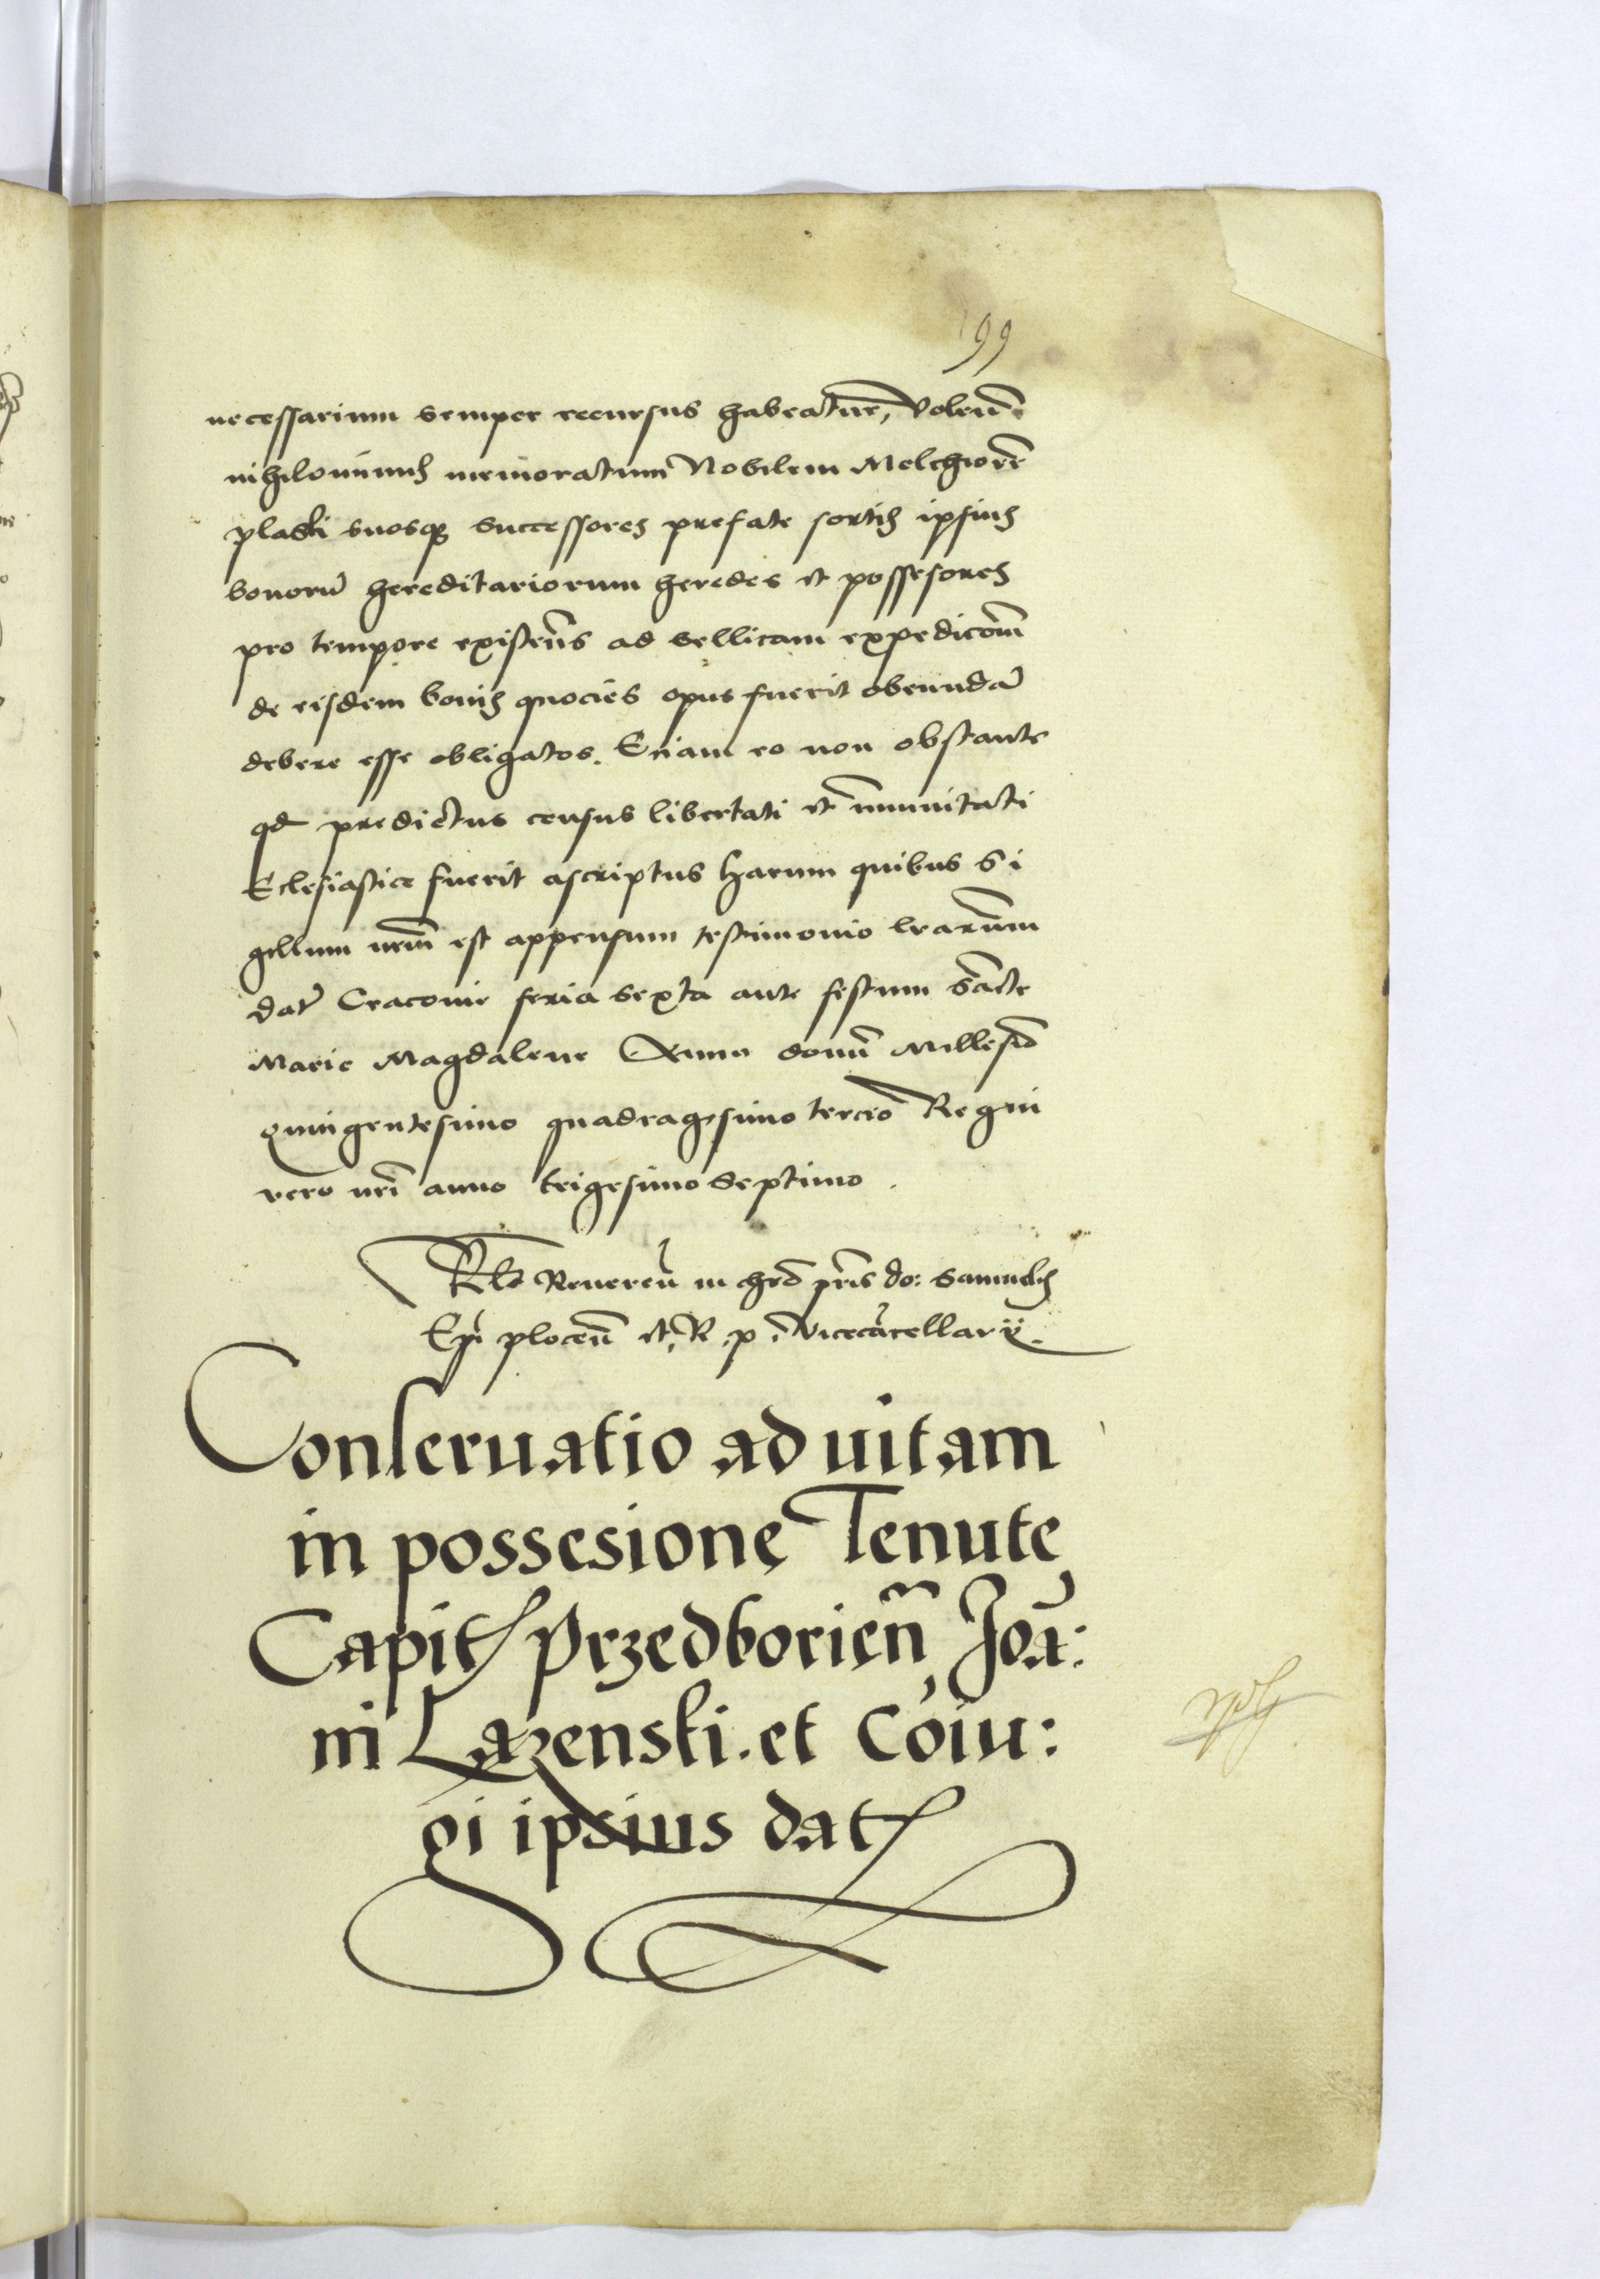 99
necessarium semper recursus habeatur, Volen̄
nihilominus memoratum Nobilem Melchiorē
plaski suosq̨ successores prefate sortis ipsius
bonorū hereditariorum heredes et possesores
pro tempore existen̄s ad bellicam expedicōm̄
de eisdem bonis quociēs opus fuerit obeundā
debere esse obligatos. Eciam eo non obstante
qd predictus census libertati et īmunitati
Eclesiastice fuerit ascriptus harum quibus Si
gillum nrm̄ est appensum testimonio lrarum̄
dat̄ Cracovie feria sexta ante festum Sāncte
Marie Magdalene Anno domī Millesīo
quingentesimo quadragesimo tercio Regni
vero nrī anno trigesimo septimo.
Rlō Reveren̄ in chrō prīs do: Samuelis
Epī plocen̄ et R. p. Vicecācellarÿ
Conservatio ad vitam
in possesione Tenute
Capit Przedborien̄ Joā:
ni Lazenski. et Cōiu:
gi ipsius dat